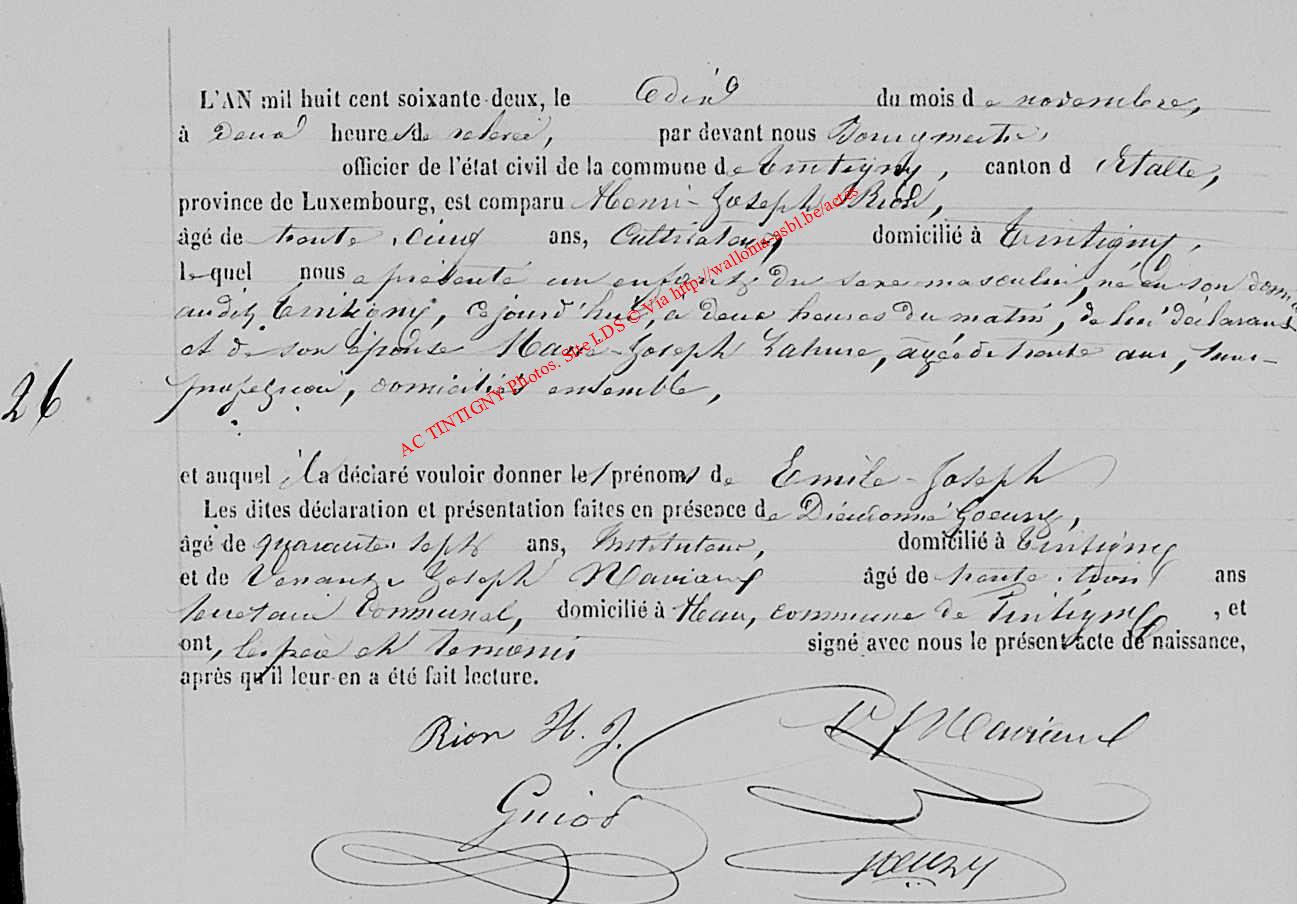 L'AN mil huit cent soixante-deux, le du mois de novembre,
à Deux heures de relevée, par devant nous Bourgmestre,
officier de l'état civil de la commune de Tintigny, canton d'Etalle,
province de Luxembourg, est comparu Henri-Joseph Rion,
âgé de trente-cinq ans, Cultivateur, domicilié à Tintigny,
lequel nous a présenté un enfant du sexe masculin, né en son domi
audit Tintigny, ce jourd'hui, à deux heures du matin, de lui déclarant
et de son épouse Marie-Joseph Lahure, agée de trente ans, sans
profession, domiciliés ensemble,
26
et auquel il a déclaré vouloir donner les prénoms de Emile-Joseph
Les dites déclaration et présentation faites en présence de Dieudonné Goeury,
âgé de quarante-sept ans, Instituteur, domicilié à Tintigny
et de Venant Joseph Maviaux âgé de trente-trois ans
secretaire Communal, domicilié à Han, commune de Tintigny, et
ont, les père et temoins signé avec nous le présent acte de naissance,
après qu'il leur en a été fait lecture.
Rion H. J. V J Maviaux
Guiot
Goeury
AC TINTIGNY Photos. Site LDS © Via http://wallonia-asbl.be/actes